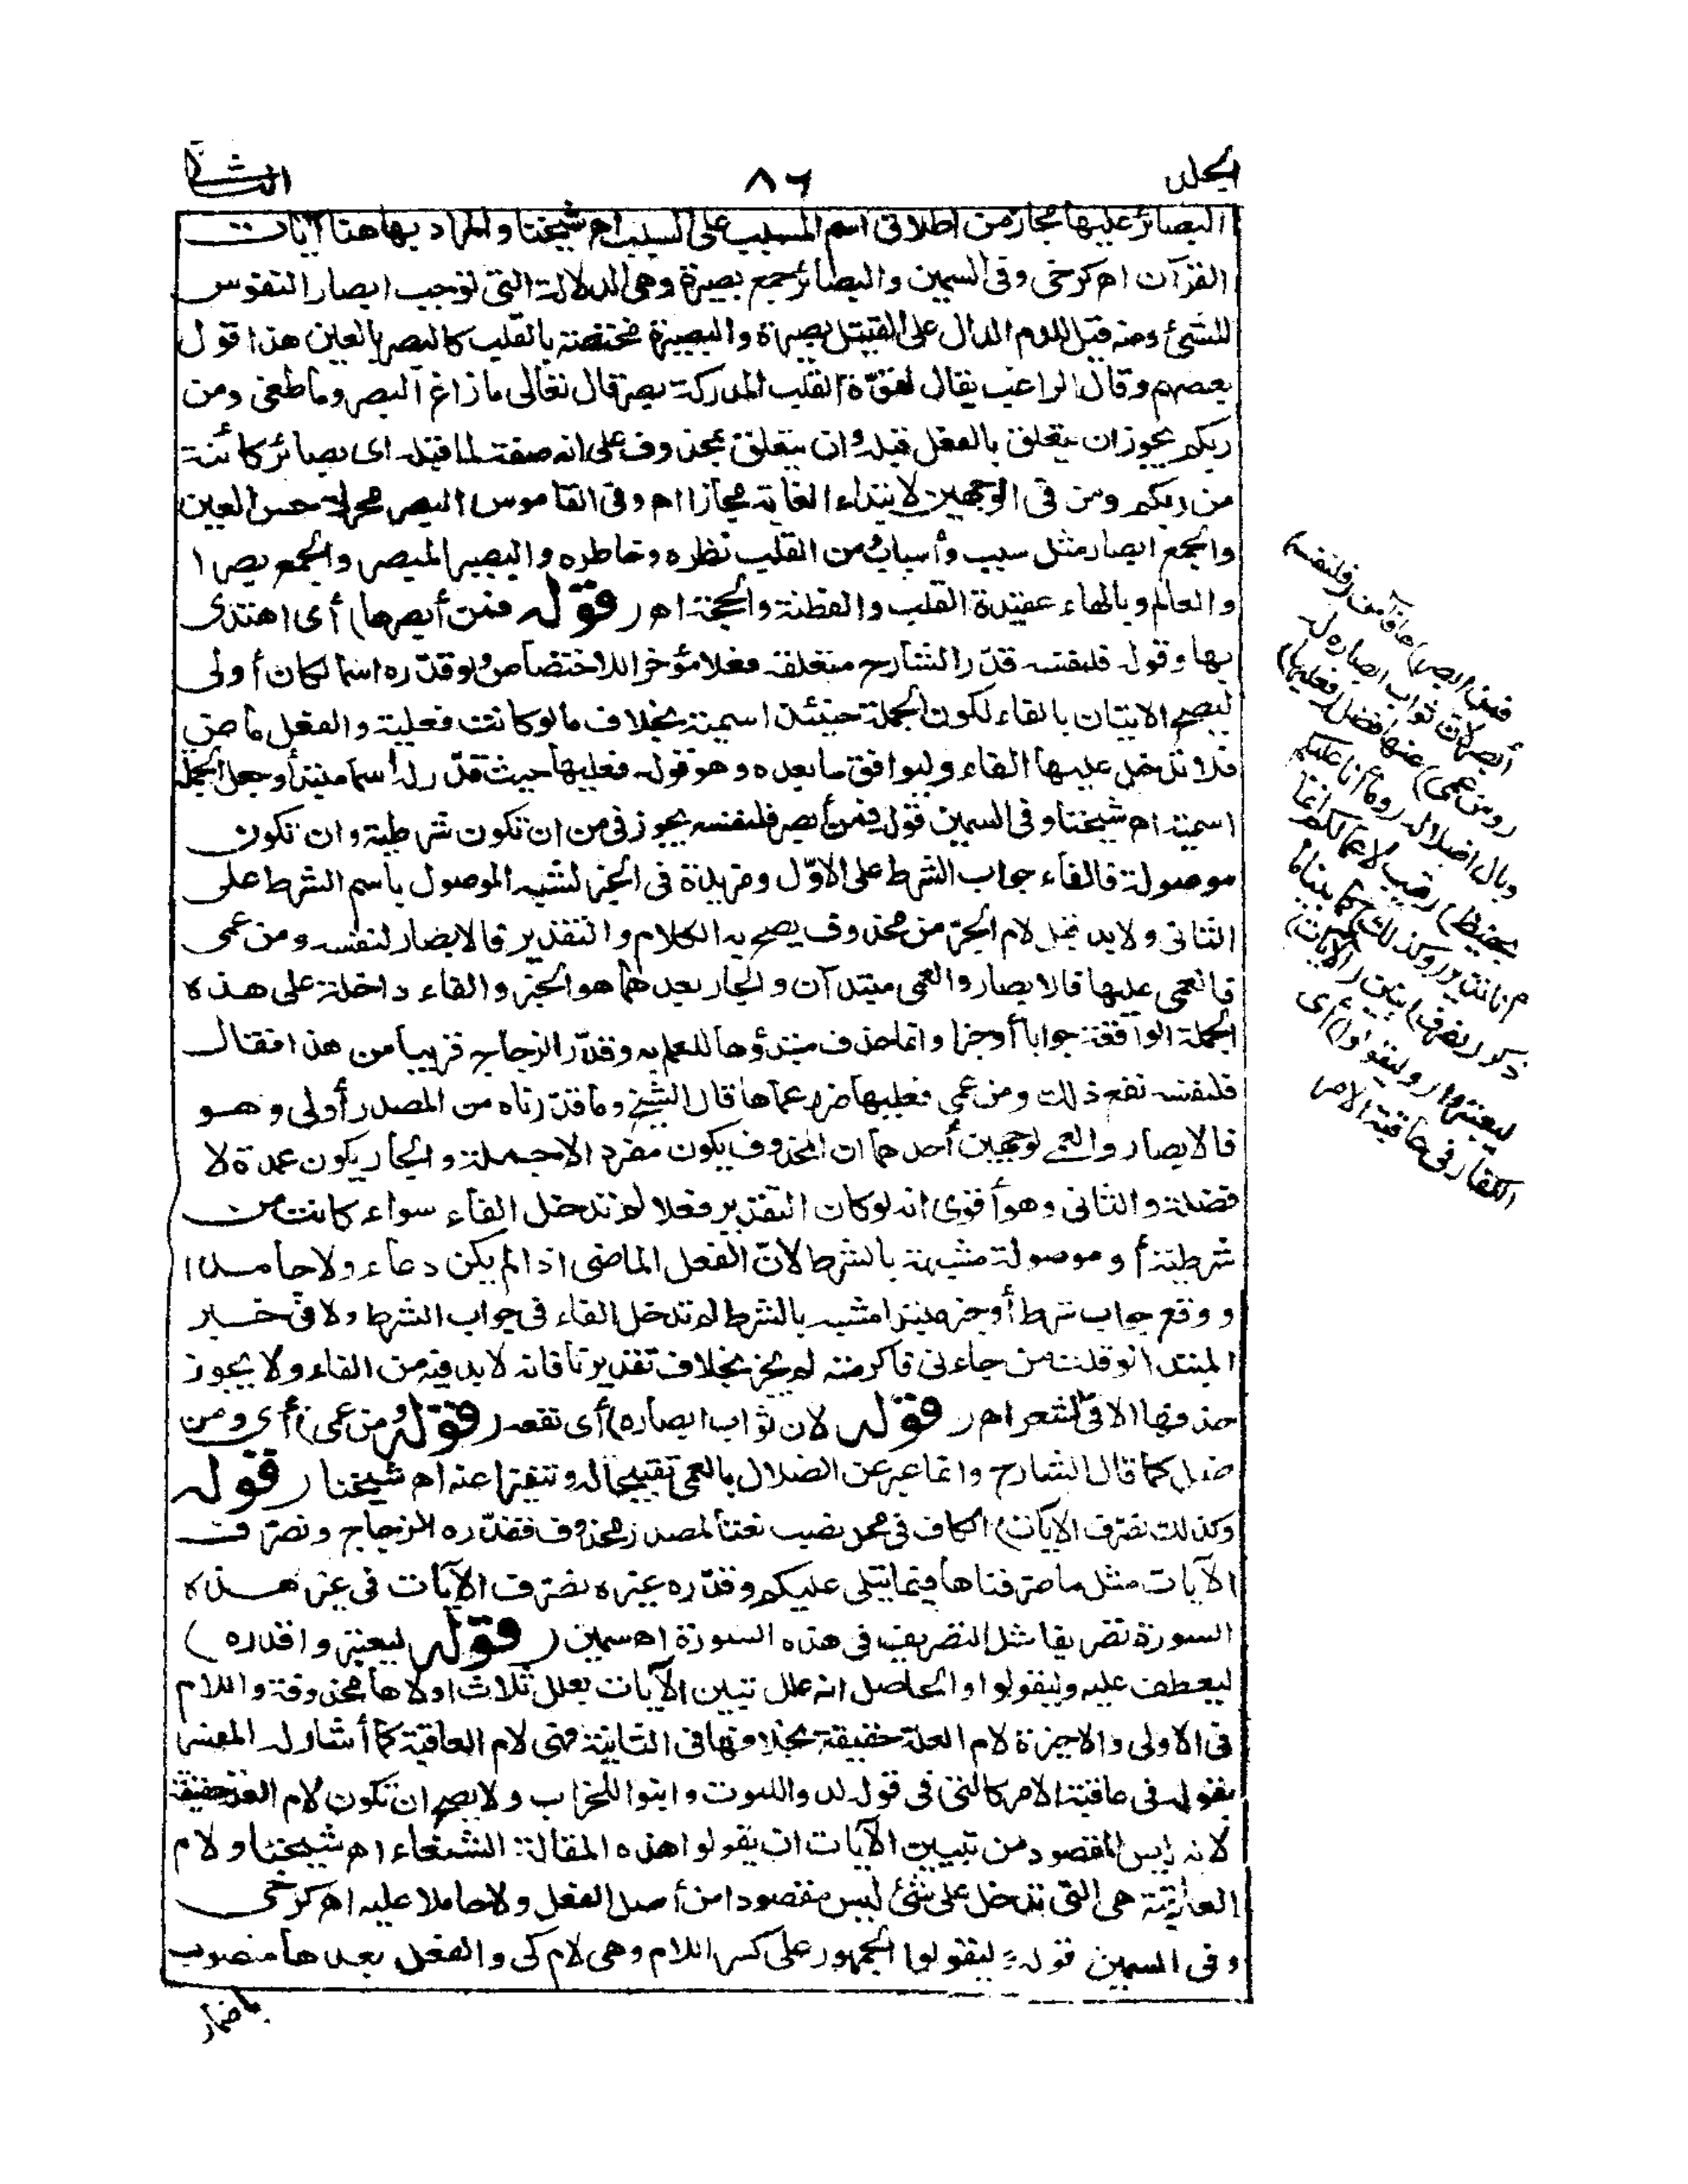 المجلد
٨٦
الثانى
البصائر عليها مجاز من اطلاق اسم المسبب على السبب اه شيخنا والمراد بها هنا آيات
القرآن اه كرخى وفى السمين والبصائر جمع بصيرة وهى الدلالة التى توجب ابصار النفوس
للشئ ومنه قيل للدم الدال على القتيل بصيرة والبصيرة مختصة بالقلب كالبصر بالعين هذا قول
بعضهم وقال الراغب يقال لقوّة القلب المدركة بصر قال تعالى ما زاغ البصر وما طغى ومن
ربكم يجوز ان يتعلق بالفعل قبله وان يتعلق بمحذوف على انه صفة لما قبله اى بصائر كائنة
من ربكم ومن فى الوجهين لابتداء الغاية مجازا اه وفى القاموس البصر محركة حس العين
والجمع ابصار مثل سبب وأسباب ومن القلب نظره وخاطره والبصير المبصر والجمع بصرا
والعالم وبالهاء عقيدة القلب والفطنة والحجة اه (قوله فمن أبصرها) أى اهتدى
بها وقوله فلنفسه قدّر الشارح متعلقه فعلا مؤخرا للاختصاص ولو قدّره اسما لكان أولى
ليصح الاتيان بالفاء لكون الجملة حينئذ اسمية بخلاف ما لو كانت فعلية والفعل ماض
فلا تدخل عليها الفاء وليوافق ما بعده وهو قوله فعليها حيث قدّر له اسما مبتدأ وجعل الجملة
اسمية اه شيخنا وفى السمين قوله فمن أبصر فلنفسه يجوز فى من ان تكون شرطية وان تكون
موصولة فالفاء جواب الشرط على الاوّل ومزيدة فى الخبر لشبه الموصول باسم الشرط على
الثانى ولا بد قبل لام الجرّ من محذوف يصح به الكلام والتقدير فالابصار لنفسه ومن عمى
فالعمى عليها فالابصار والعمى مبتدآن والجار بعدهما هو الخبر والفاء داخلة على هذه
الجملة الواقعة جوابا أو خبرا وانما حذف مبتدؤها للعلم به وقدّر الزجاج قريبا من هذا فقال
فلنفسه نفع ذلك ومن عمى فعليها ضرر عماها قال الشيخ وما قدّرناه من المصدر أولى وهو
فالابصار والعمى لوجهين أحدهما ان المحذوف يكون مفردا لا جملة والجار يكون عمدة لا
فضلة والثانى وهو أقوى انه لو كان التقدير فعلا لم تدخل الفاء سواء كانت من
شرطية أو موصولة مشبهة بالشرط لانّ الفعل الماضى اذا لم يكن دعاء ولا جامدا
ووقع جواب شرط أو خبر مبتدا مشبه بالشرط لم تدخل الفاء فى جواب الشرط ولا فى خبر
المبتدا لو قلت من جاءنى فاكرمته لم يجز بخلاف تقديرنا فانه لا بد فيه من الفاء ولا يجوز
حذفها الا فى الشعر اه (قوله لان ثواب ابصاره) أى نفعه (قوله ومن عمى) أى ومن
ضل كما قال الشارح وانما عبر عن الضلال بالعمى تقبيحا له وتنفيرا عنه اه شيخنا (قوله
وكذلك نصرّف الآيات) الكاف فى محل نصب نعتا لمصدر محذوف فقدّره الزجاج ونصرّف
الآيات مثل ما صرّفناها فيما يتلى عليكم وقدّره غيره نصرّف الآيات فى غير هذه
السورة تصريفا مثل التصريف فى هذه السورة اه سمين (قوله ليعتبروا قدره)
ليعطف عليه وليقولوا والحاصل انه علل تبيين الآيات بعلل ثلاث اولاها محذوفة واللام
فى الاولى والاخيرة لام العلة حقيقة بخلافها فى الثانية فهى لام العاقبة كما أشار له المفسر
بقوله فى عاقبة الامر كالتى فى قوله لدوا للموت وابنوا للخراب ولا يصح ان تكون لام العلة حقيقة
لانه ليس المقصود من تبيين الآيات ان يقولوا هذه المقالة الشنعاء اه شيخنا ولام
العاقبة هى التى تدخل على شئ ليس مقصودا من أصل الفعل ولا حاملا عليه اه كرخى
وفى السمين قوله ليقولوا الجمهور على كسر اللام وهى لام كى والفعل بعدها منصوب
باضمار
فمن ابصر) ها فآمن (فلنفسه)
أبصر لان ثواب ابصاره له
(ومن عمى) عنها فضل (فعليها)
وبال اضلاله (وما أنا عليكم
بحفيظ) رقيب لاعمالكم انما
أنا نذير (وكذلك) كما بينا ما
ذكر (نصرف) نبين (الآيات)
ليعتبروا (وليقولوا) أى
الكفار فى عاقبة الامر